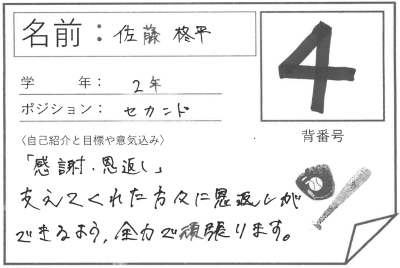 名前：佐藤 柊平
4
学年：2年
ポジション：セカンド
背番号
〈自己紹介と目標や意気込み〉
「感謝・恩返し」
支えてくれた方々に恩返しが
できるよう、全力で頑張ります。